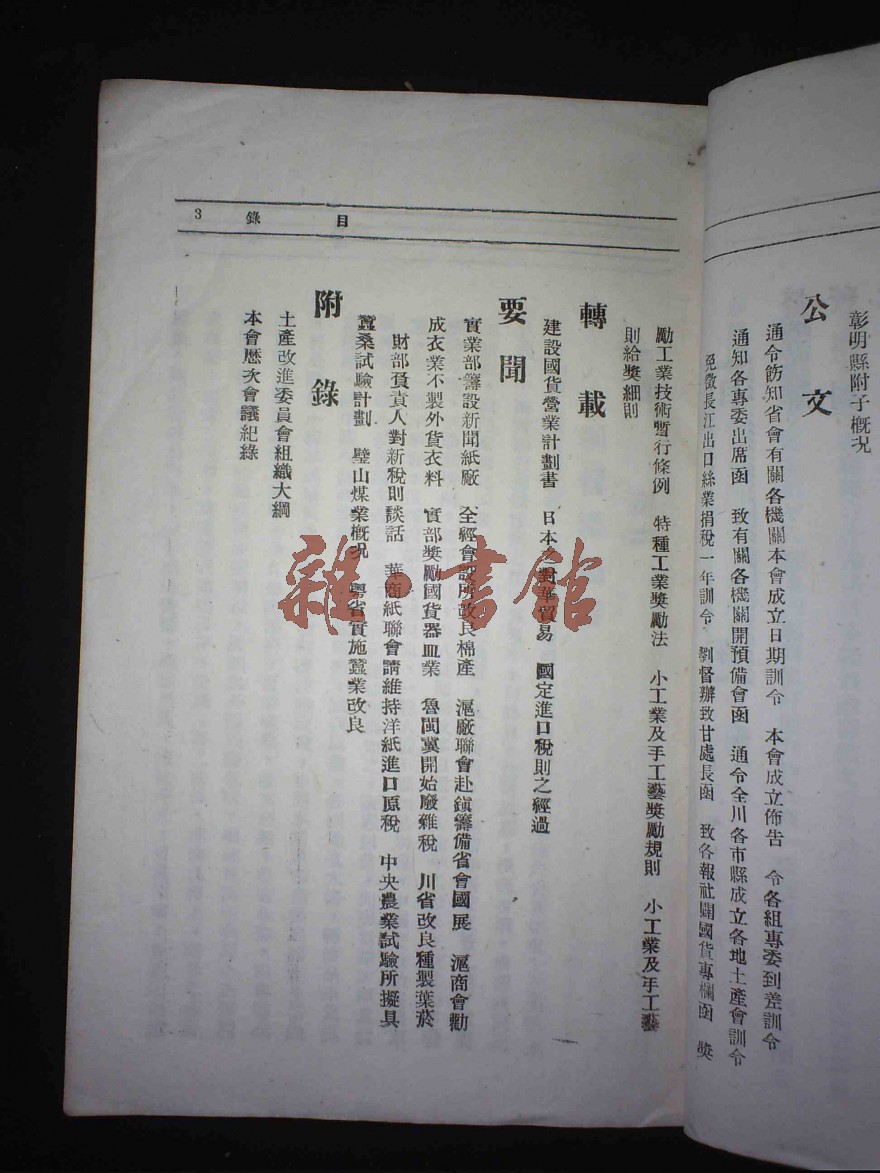 彰明縣附子概況
公文
通令飭知省會有關各機關本會成立日期訓令　本會成立佈告　令各組專委到差訓令
通知各專委出席函　致有關各機關開預備會函　通令全川各市縣成立各地土產會訓令
免徵長江出口絲業捐稅一年訓令　劉督辦致甘處長函　致各報社闢國貨專欄函　獎
目錄 3
勵工業技術暫行條例　特種工業獎勵法　小工業及手工藝獎勵規則　小工業及手工藝
則給獎細則
轉載
建設國貨營業計劃書　日本之對華貿易　國定進口稅則之經過
要聞
實業部籌設新聞紙廠　全經會設所改良棉產　滬廠聯會赴鎮籌備省會國展　滬商會勸
成衣業不製外貨衣料　實部獎勵國貨器皿業　魯閩冀開始廢雜稅　川省改良種製葉菸
財部負責人對新稅則談話　華商紙聯會請維持洋紙進口原稅　中央農業試驗所擬具
蠶桑試驗計劃　璧山煤業概況　粵省實施蠶業改良
附錄
土產改進委員會組織大綱
本會歷次會議紀錄
雜·書館